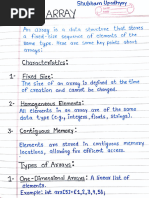 Shubham Upadhyay
ARRAY
An array is a data structure that stores
a fixed-size sequence of elements of the
same type. Here are some key points about
arrays:
Characteristics:
1- Fixed Size:
The size of an array is defined at the
time of creation and cannot be changed.
2- Homogeneous Elements:
All elements in an array are of the same
data type (e.g., integers, floats, strings).
3- Contiguous Memory:
Elements are stored in contiguous memory
locations, allowing for efficient access.
Types of Arrays:
1- One-Dimensional Arrays: A linear list of
elements.
Example: int arr[5]={1,2,3,4,5};